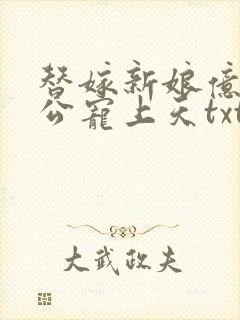 替嫁新娘億
公寵上天txt
大武政夫